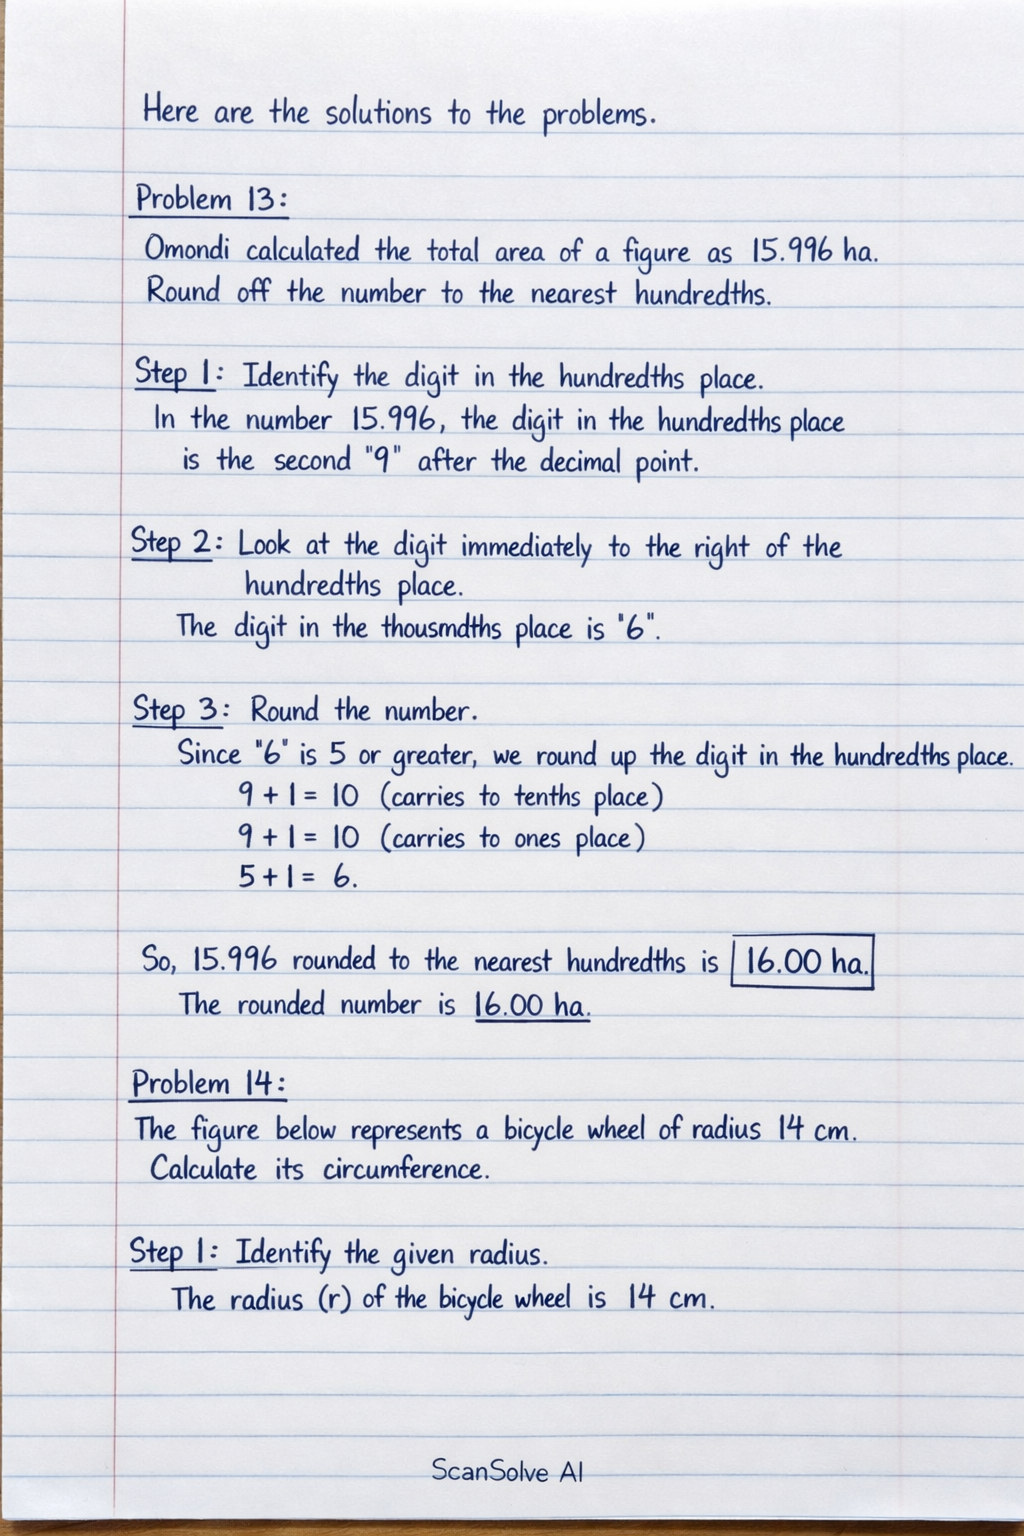 Here are the solutions to the problems.
Problem 13:
Omondi calculated the total area of a figure as 15.996 ha.
Round off the number to the nearest hundredths.
Step 1: Identify the digit in the hundredths place.
In the number 15.996, the digit in the hundredths place
is the second "9" after the decimal point.
Step 2: Look at the digit immediately to the right of the
hundredths place.
The digit in the thousmdths place is "6".
Step 3: Round the number.
Since "6" is 5 or greater, we round up the digit in the hundredths place.
9 + 1 = 10 (carries to tenths place)
9 + 1 = 10 (carries to ones place)
5 + 1 = 6.
So, 15.996 rounded to the nearest hundredths is 16.00 ha.
The rounded number is 16.00 ha.
Problem 14:
The figure below represents a bicycle wheel of radius 14 cm.
Calculate its circumference.
Step 1: Identify the given radius.
The radius (r) of the bicycle wheel is 14 cm.
ScanSolve AI